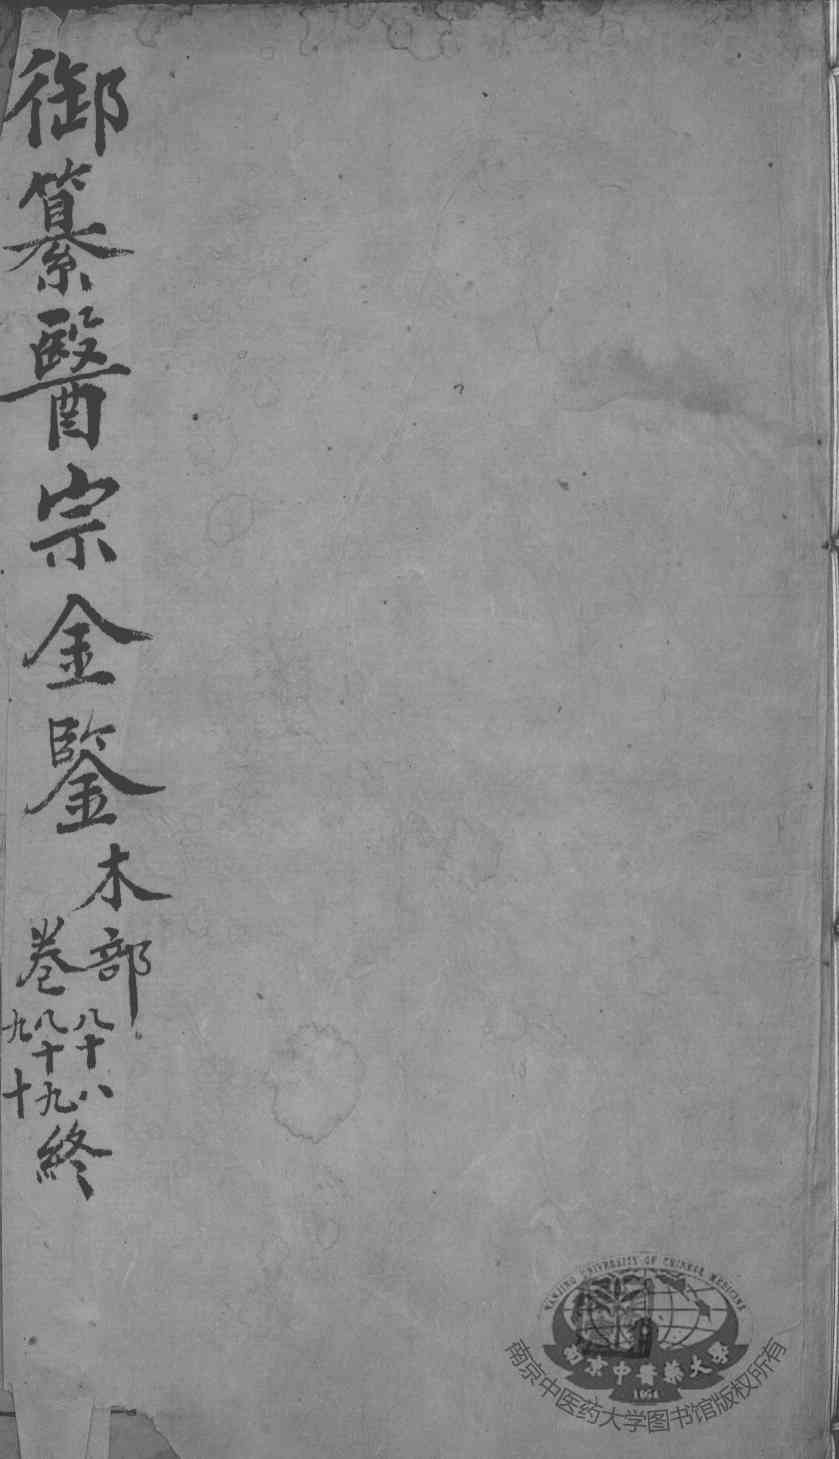 御纂醫宗金鑒
木部
卷
八十八
八十九
九十
終
NANJING UNIVERSITY OF CHINESE MEDICINE
南京中醫藥大學
1954
南京中医药大学图书馆版权所有